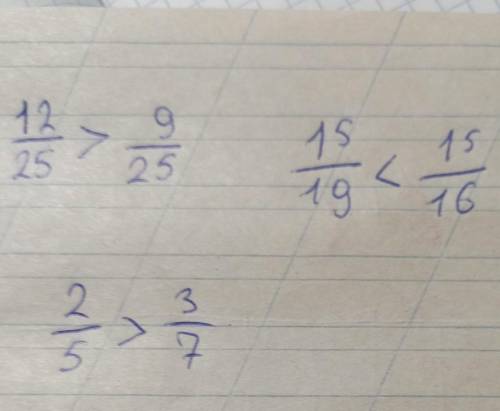 12/25 > 9/25
15/19 < 15/16
2/5 > 3/7